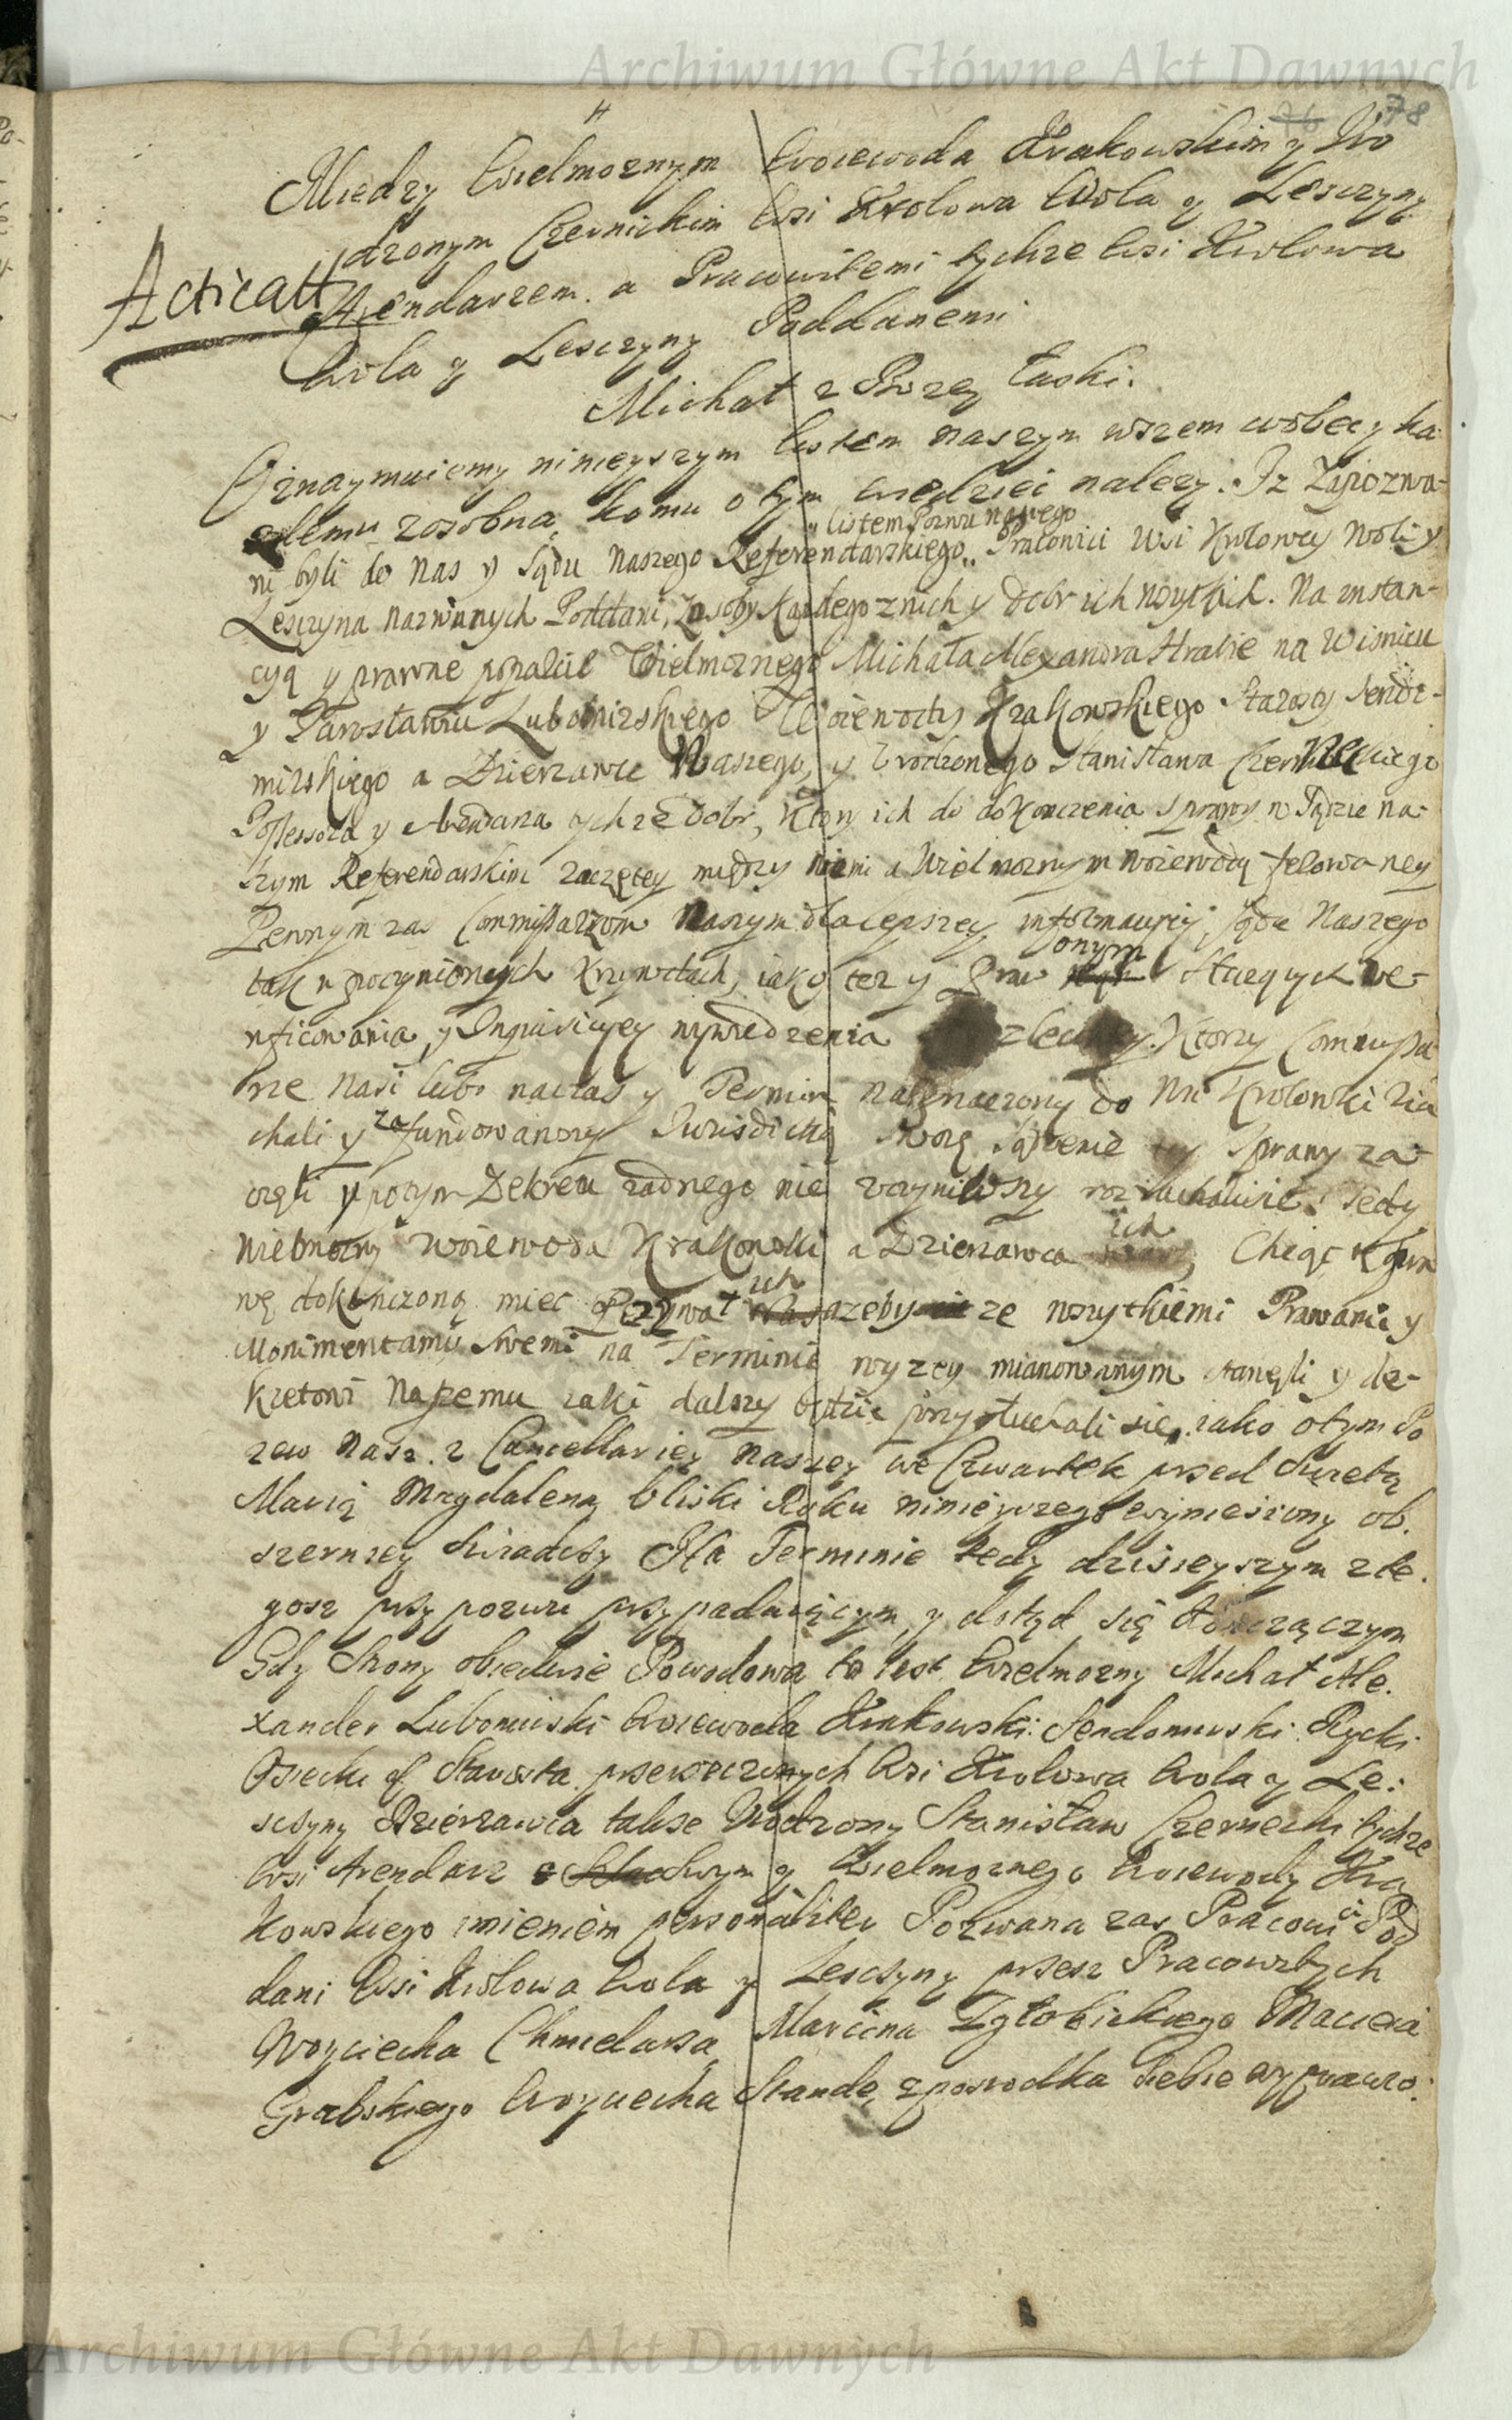 Archiwum Główne Akt Dawnych
76 78
Miedzy Wielmoznym Woiewoda Krakowskim y Uro
dzonym Czernickim Wsi Krolowa Wola y Lesczyny
Acticatt
Arendarzem a Pracowitemi tychze Wsi Krolowa
Wola y Lesczyny Poddanemi
Michał z Bozey Łaski.
Oznaymuiemy ninieyszym listem naszym wszem wobec y ka
zdemu zosobna komu o tym wiedziec nalezy. Iz Zapozwa-
listem Pozwu naszego
ni byli do Nas y Sądu Naszego Referendarskiego Pracowici Wsi Krolowey Woli y
Lesczyna nazwanych Poddani, z osoby kazdego z nich y dobr ich wszytkich. Na instan-
cyą y prawne poparcie Wielmoznego Michała Alexandra Hrabie na Wisniczu
y Jarosławiu Lubomirskiego Woiewody Krakowskiego Starosty Sendo-
mirskiego a Dzierzawce Naszego, y Urodzonego Stanisława Czerneckiego
Possessora y Arendarza tychze dobr, Ktory ich do dokonczenia sprawy w Sądzie na-
szym Referendarskim zaczętey między niemi a Wielmoznym Woiewodą
Pewnym zas Commissarzom Naszym dla lepszey informacyiey Sądu Naszego
onym
tak o poczynionych Krzywdach, iako tez y Praw słuzących we-
ryficowania, y Inquisicyey wywiedzenia zleconey. Ktorzy Commissa
rze Nasi lubo na czas y Termin naznaczony do Wsi Krolowki Zia
chali y zafundowawszy Jurisdictią swoię sądzenie tey Sprawy za-
częli y potym Dekretu zadnego nie uczyniwszy roziachalisie. Tedy
ich
Wielmozny Woiewoda Krakowski a Dzierzawca Chcąc tę spra
ich
wę dokonczoną miec Pozywał azeby ze wszytkiemi Prawami y
Monimentamy swemi na Terminie wyzey mianowanym stanęli y de-
kretowi Naszemu iaki dalszy będzie przysłuchali się, iako o tym Po
zew Nasz z Cancellariey naszey we Czwartek przed Swietą
Marią Magdaleną bliski Roku ninieyszego wyniesziony ob.
szerniey swiadczy Na Terminie tedy dzisieyszym z te.
gosz przy pozwu przypadaiącym, y dotąd się toczączym
Gdy Strony obiedwie Powodowa to iest Wielmozny Michał Ale.
xander Lubomirski Woiewoda Krakowski Sendomirski Rycki
Osiecki Starosta przerzeczonych Wsi Krolowa Wola y Le.
sczyny Dzierzawca takze Urodzony Stanisław Czernecki tychze
Wsi Arendarz swym y Wielmoznego Woiewody Kra
kowskiego imieniem personaliter Pozwana zas Pracowici Pod
dani Wsi Krolowa Wola y Lesczyny przesz Pracowitych
Woyciecha Chmielarza Marcina Zgłobickiego Macieia
Grabskiego Woyciecha Skandę zposrodka siebie wyprawio.
Archiwum Główne Akt Dawnych